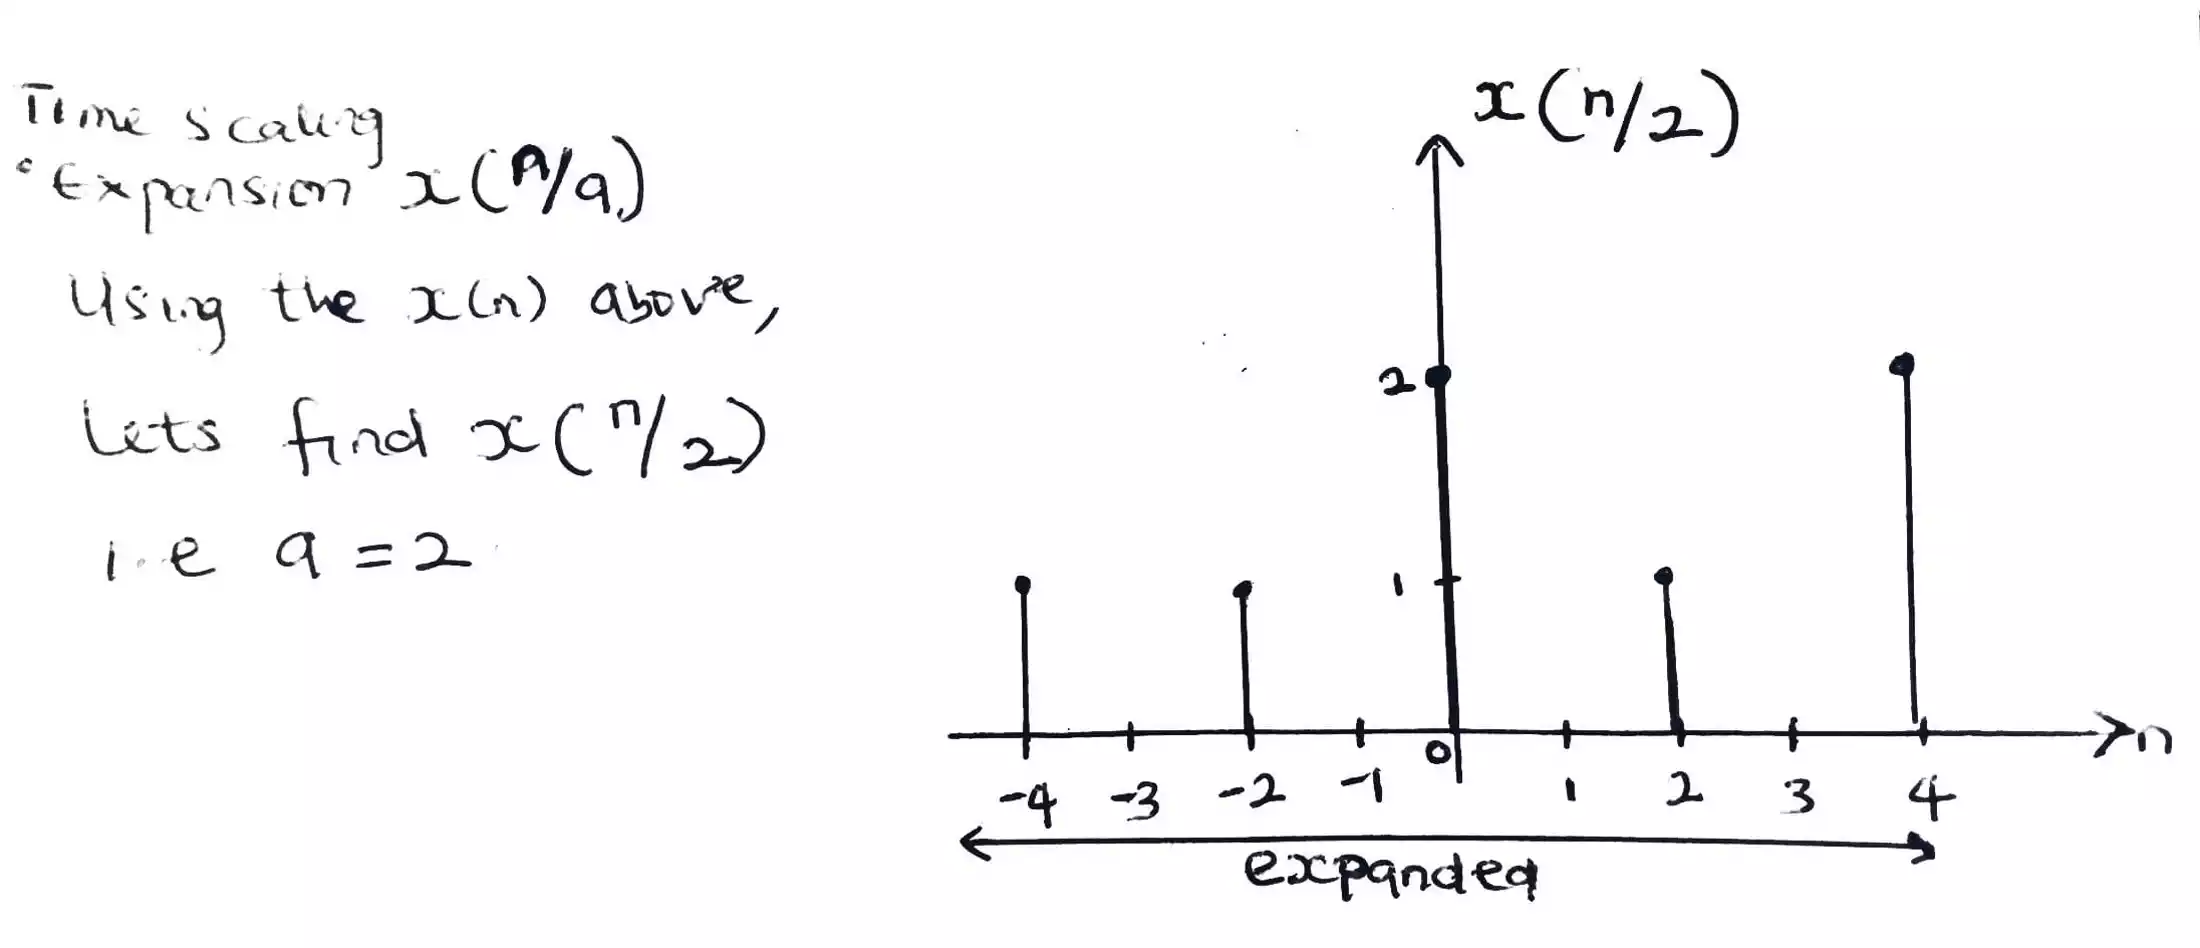 Time scaling
• Expansion x(n/a)
Using the x(n) above,
Lets find x(n/2)
i.e a = 2
x(n/2)
2
1
0
-4 -3 -2 -1 1 2 3 4
n
expanded